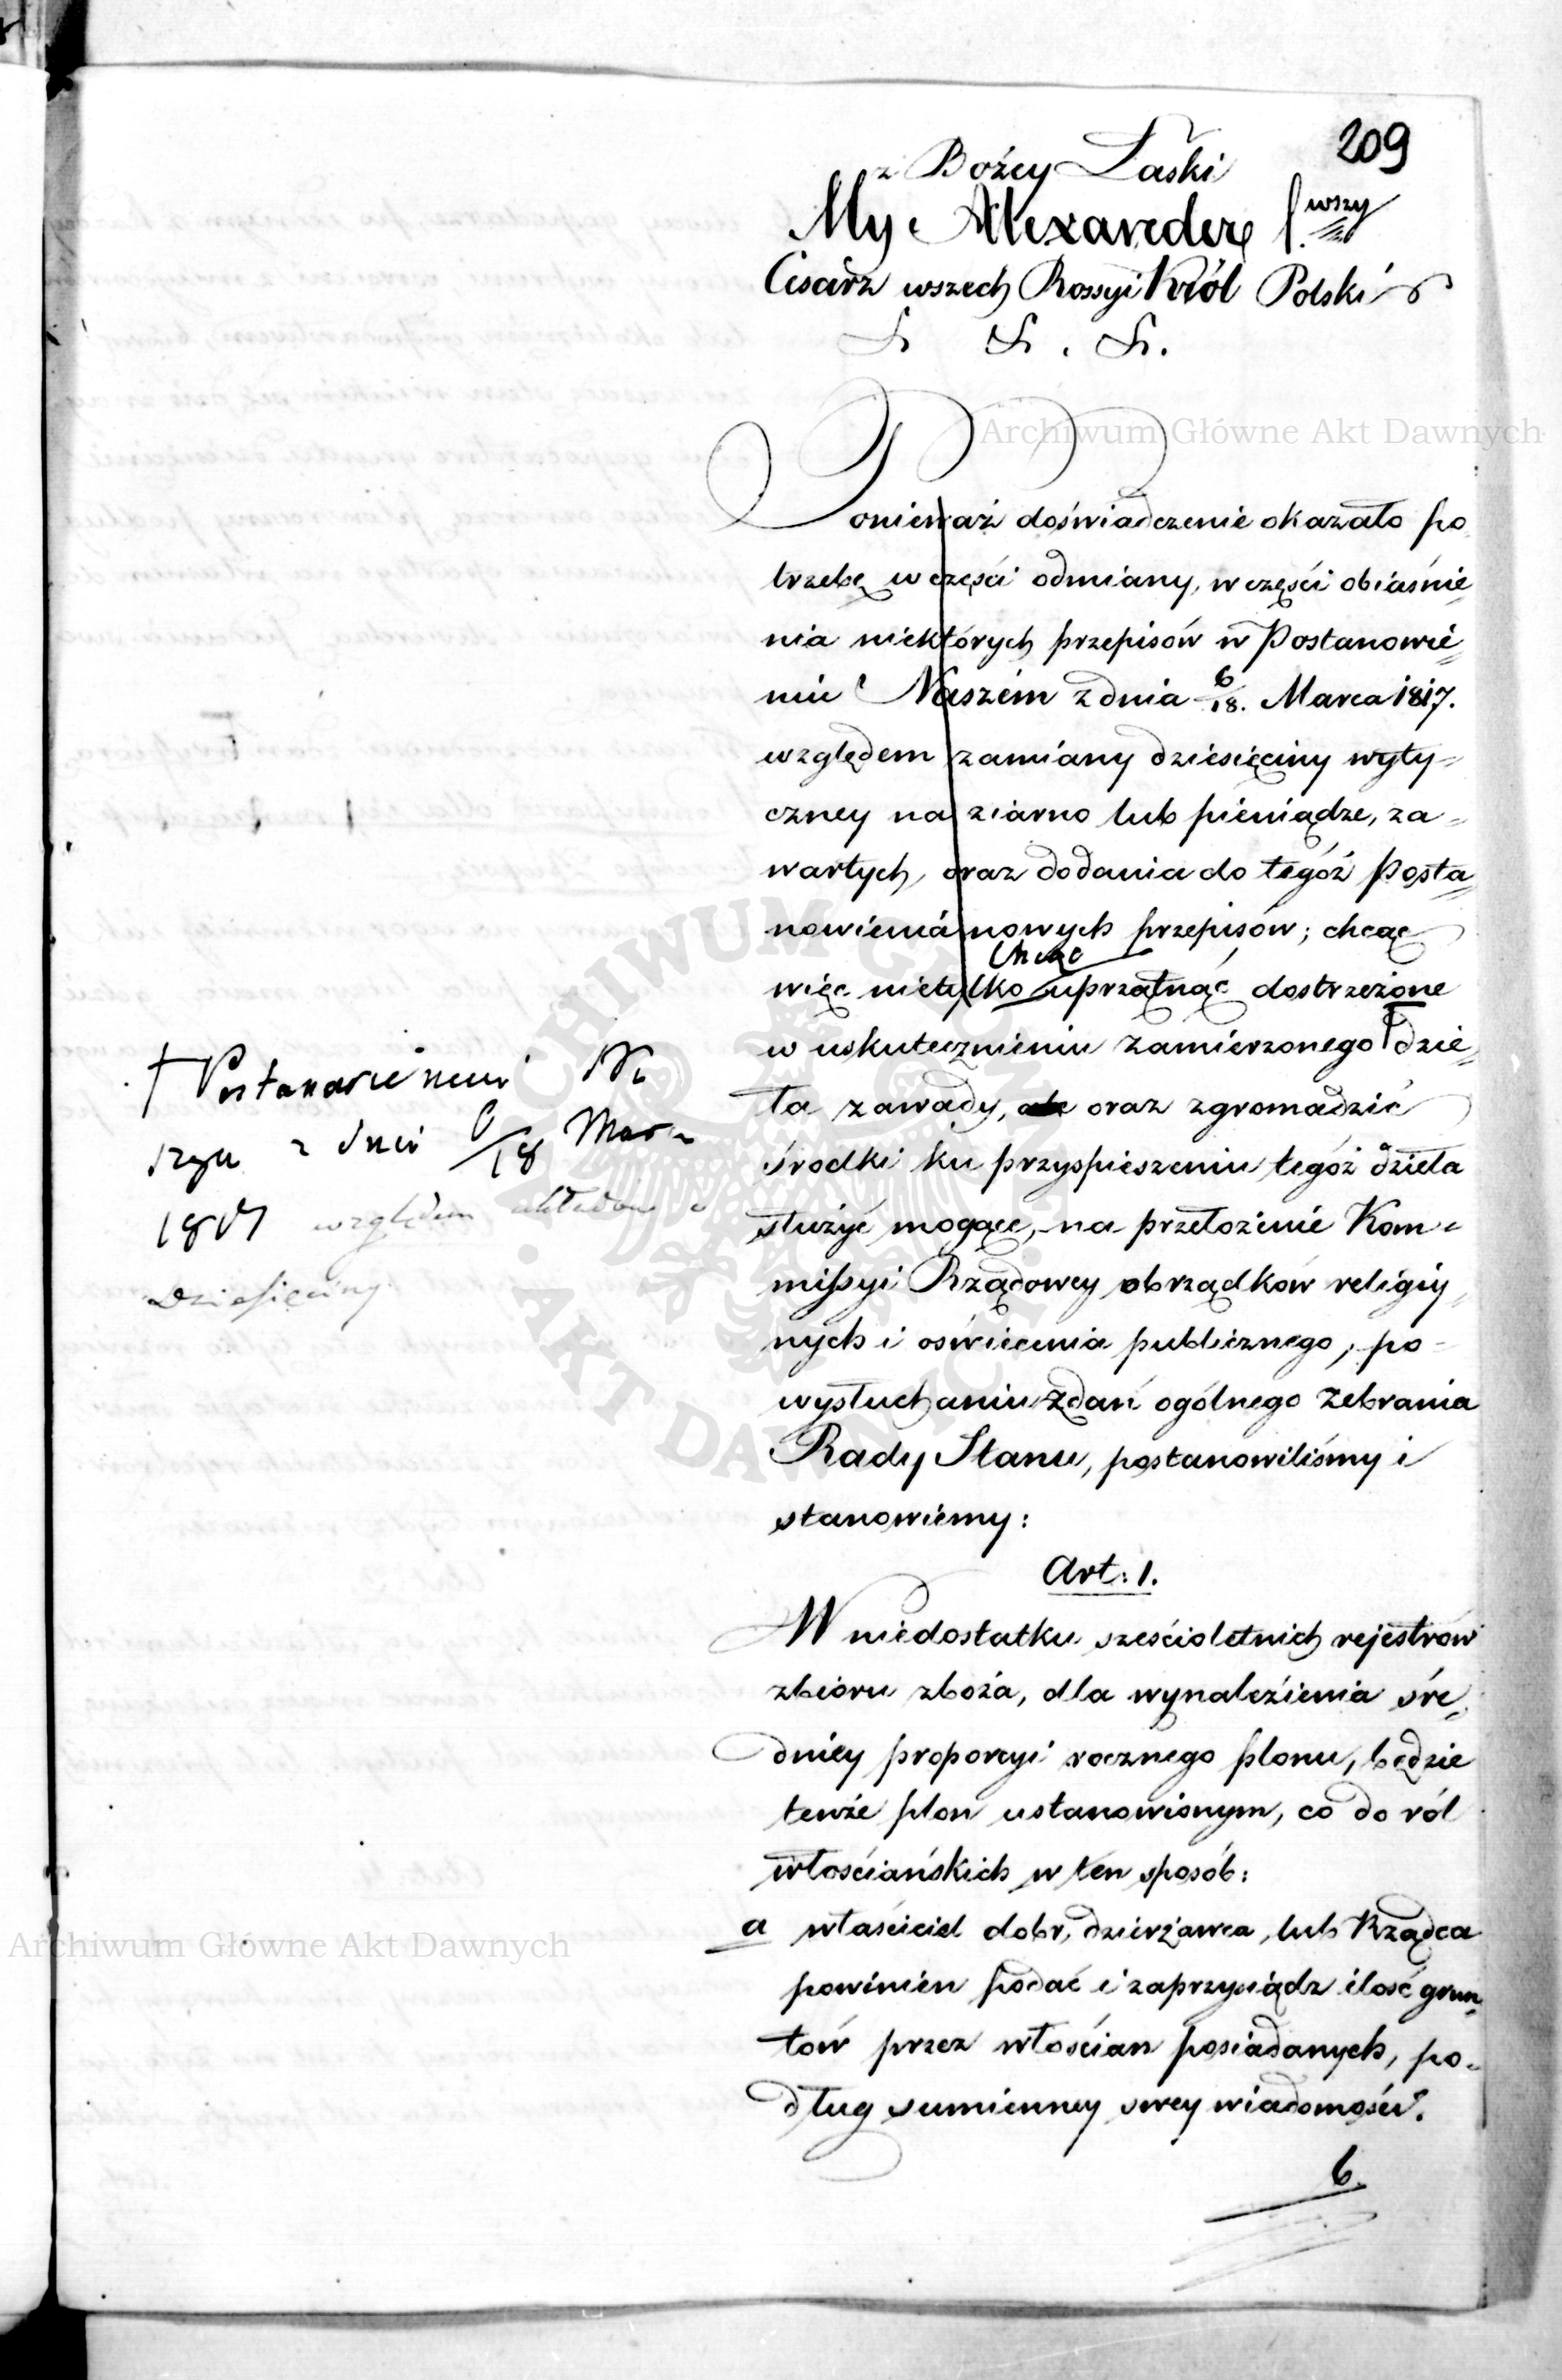 209
z Bożey Łaski
My Alexander I.wszy
Cesarz wszech Rossyi Król Polski
&. &. &.
Archiwum Główne Akt Dawnych
Ponieważ doświadczenie okazało po
trzebę w części odmiany, w części obiaśnie=
nia niektórych przepisów w Postanowie=
niu Naszém z dnia 6/18. Marca 1817.
względem zamiany dziesięciny wyty=
czney na ziarno lub pieniądze, za=
wartych, oraz dodania do tegóż Posta=
nowienia nowych przepisów; chcąc
Chcąc
więc nietylko uprzątnąć dostrzeżone
w uskutecznieniu zamierzonego dzie=
ła zawady, ale oraz zgromadzić
środki ku przyspieszeniu tegóż dzieła
służyć mogące, na przełożenie Kom=
missyi Rządowey obrządków religiy=
nych i oświecenia publicznego, po=
wysłuchaniu zdań ogólnego Zebrania
Rady Stanu, postanowiliśmy i
stanowiemy:
† Postanowieniem Na
szym z dnia 6/18 Marca
1817 względem układów o
Dziesięciny
ARCHIWUM GŁÓWNE · AKT DAWNYCH ·
Art: 1.
W niedostatku sześcioletnich rejestrów
zbioru zboża, dla wynaleźienia śre=
dniey proporcyi rocznego plonu, będzie
tenże plon ustanowionym, co do ról
włościańskich w ten sposób:
a właściciel dobr, dzierżawca, lub Rządca
powinien podać i zaprzysiądz ilość grun=
tów przez włościan posiadanych, po=
dług sumienney swey wiadomości.
b.
Archiwum Główne Akt Dawnych